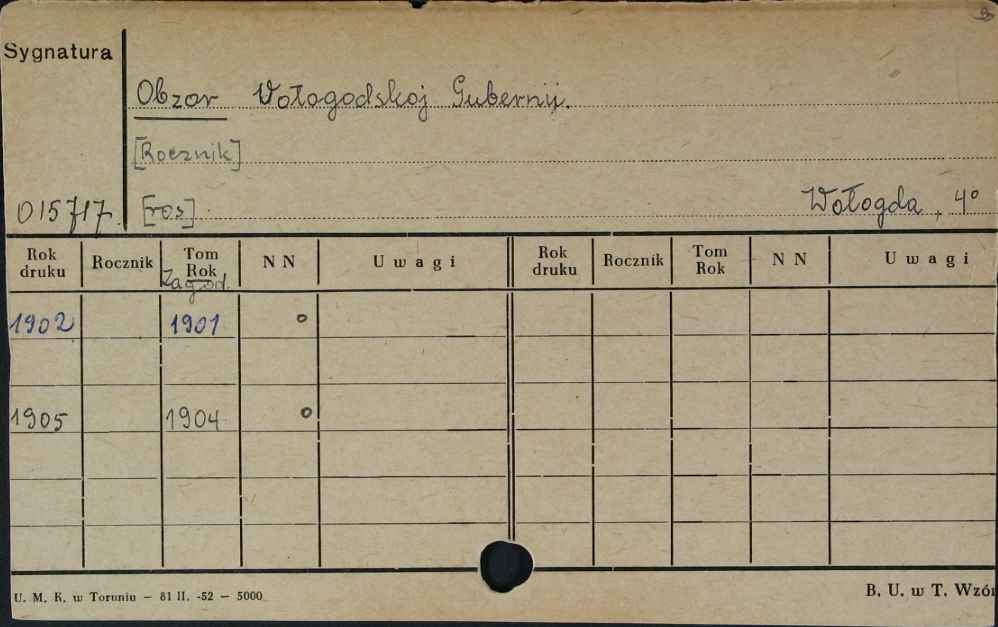 Sygnatura
Obzor Wołogodskoj Gubernij.
[Rocznik]
015717. [ros] Wołogda, 4°
Rok druku Rocznik Tom Rok N N Uwagi Rok druku Rocznik Tom Rok N N Uwagi
Za god.
1902 1901 o
1905 1904 o
U. M. K. w Toruniu – 81 II. -52 – 5000 B. U. w T. Wzór